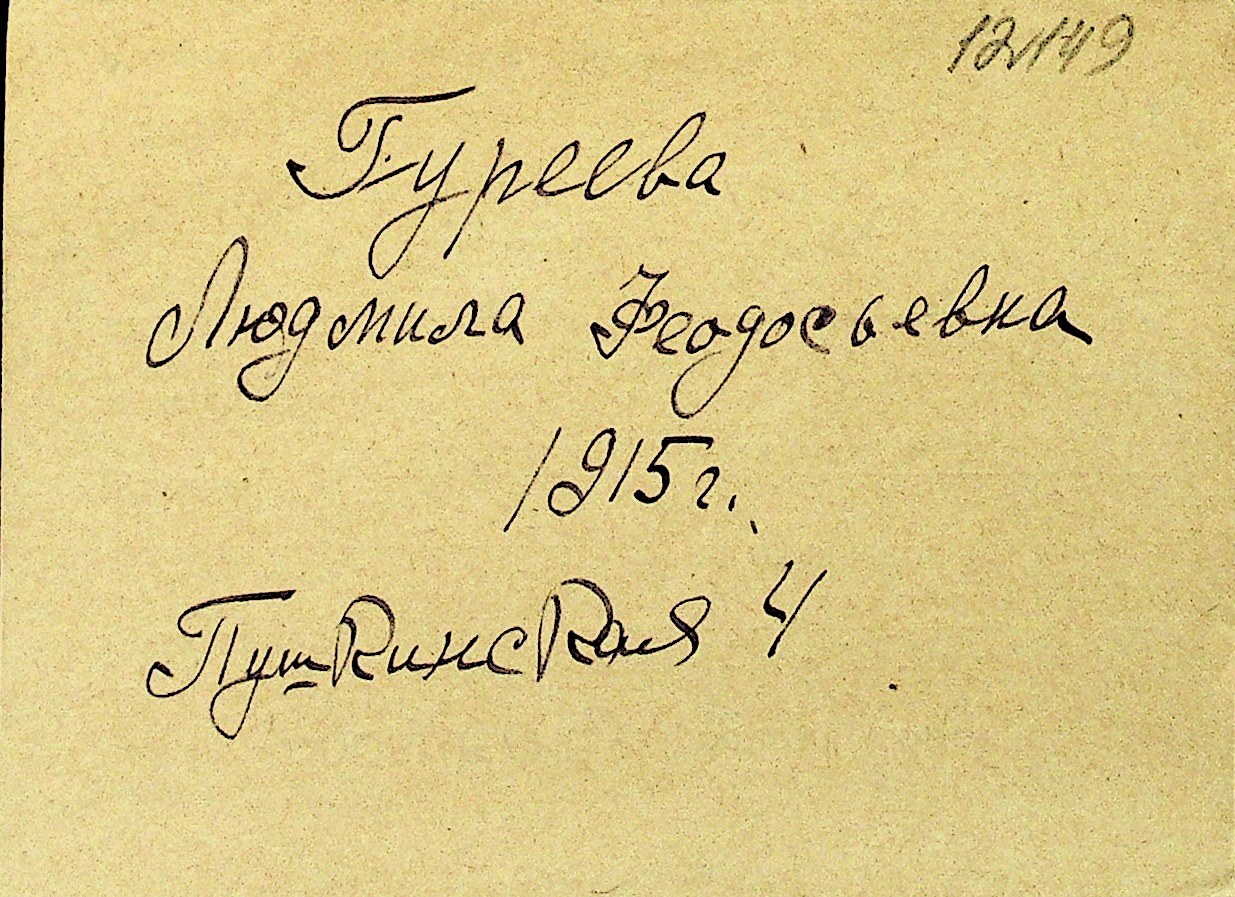 12149
Гуреева
Людмила Феодосьевна
1915г.
Пушкинская 4